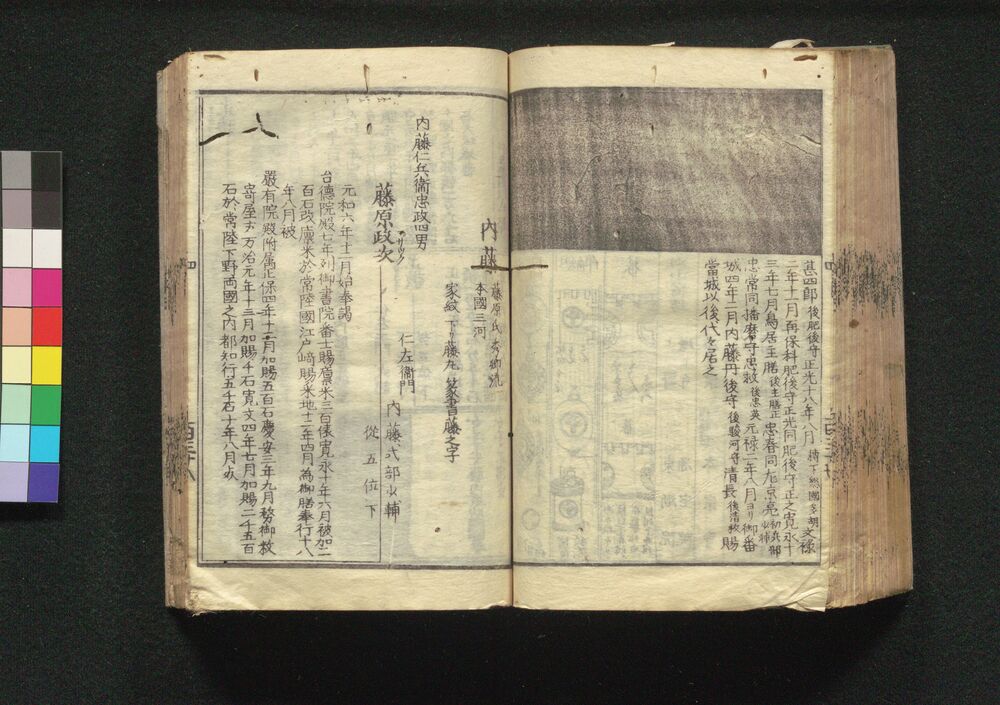 甚四郎後肥後守正光十八年八月 移下総國多胡 文禄
二年十二月再保科肥後守正光同肥後守正之寛永十
三年七月鳥居主膳後主膳正忠春同左京亮初兵部少輔
忠常同播磨守忠救後忠英元禄二年八月ヨリ御番
城四年二月内藤丹後守後駿河守清長後清枚賜
當城以後代々居之
内藤
藤原氏 秀郷流
本國三河
家紋 下リ藤丸 篆書藤之字
内藤仁兵衛忠政四男
藤原政次
仁左衛門
内藤式部少輔
從五位下
元和六年十二月始奉謁
台德院殿七年列御書院番士賜廩米三百俵寛永十年六月被加二
百石改廩米於常陸國江戸﨑賜米地十二年四月為御膳奉行十八
年八月被
嚴有院殿附属正保四年十二月加賜五百石慶安三年九月務御救
寄屋方万治元年十二月加賜千石寛文四年七月加賜二千五百
石於常陸下野両國之内都知行五千石十年八月